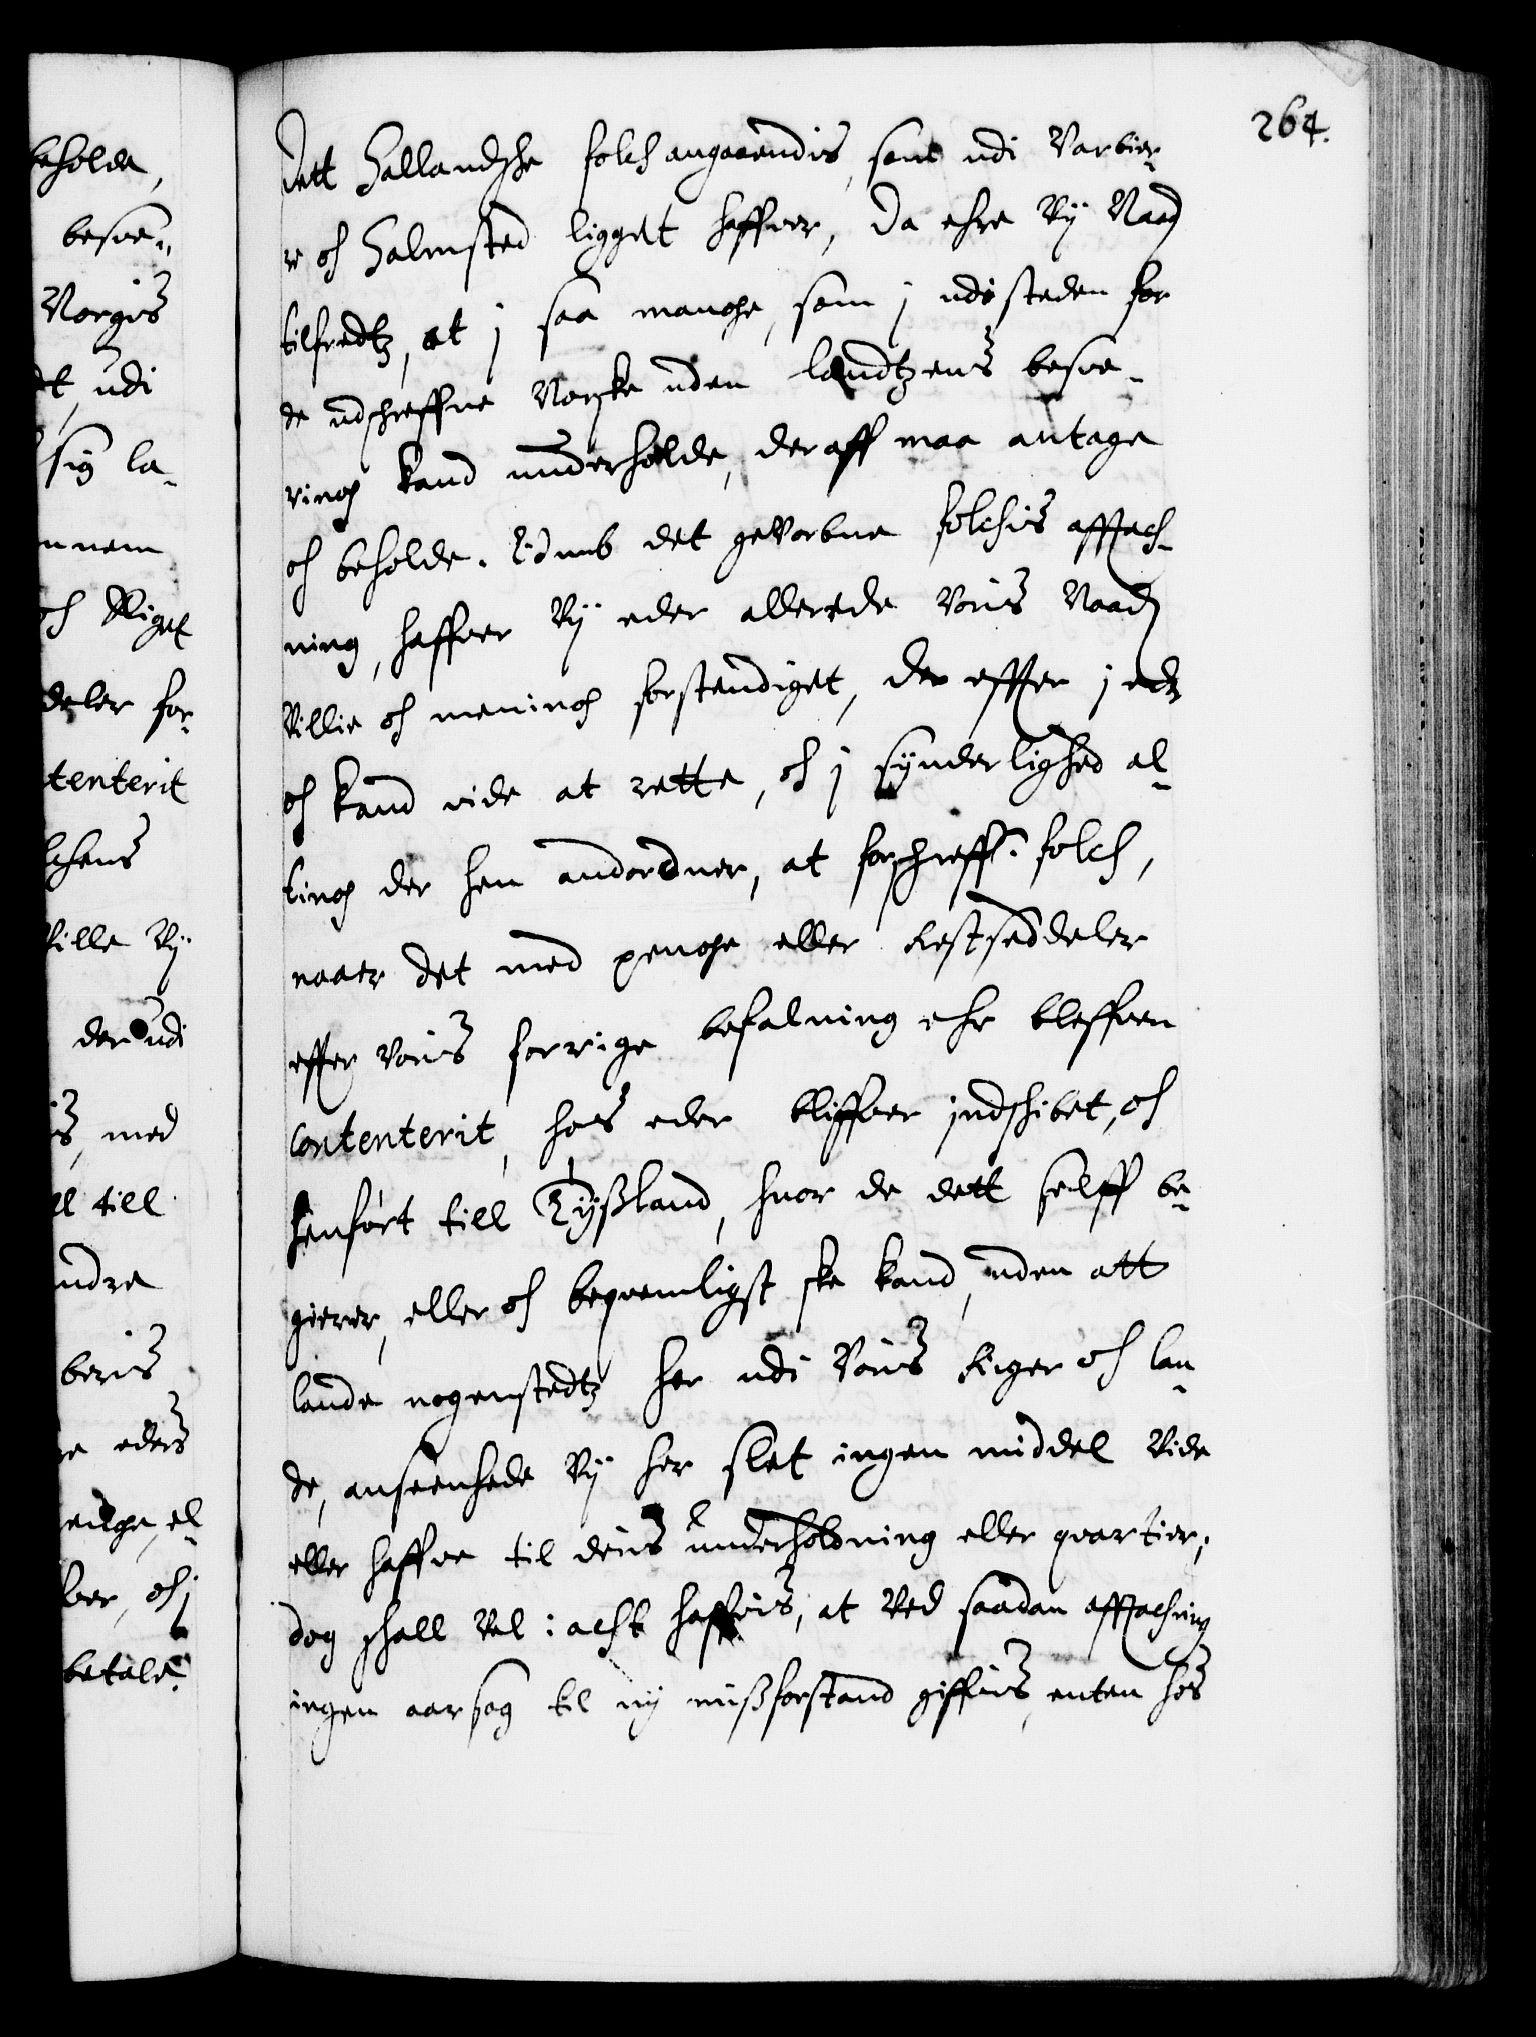 264.
dett Hallandsche folch angaaendis, som udi Varbier-
re och Halmsted ligget haffver, da ehre Vÿ Naad
tilfredtz, at j saa mange, som j udi steden for
de udschreffne Norske uden landtzens besve-
ring kand underholde, der aff maa antage
och beholde. Aaumb det gevorbne folchis afftach-
ning, haffver Vÿ eder allerede Voris Naad
Villie och mening forstendiget, der effter j eder
och kand vide at rette, och j sÿnderlighed al-
ting der hen andordner, at forschreffne folch,
naar det med penge eller Restseddeler
effter Voris forrige befalning ehr bleffven
contenterit, hos eder bliffver indschibet, och
henført till Tÿßland, hvor de dett selff be-
gierer, eller och beqvemligst ske kand, uden att
lande nogenstedtz her udi Voris Riger och lan-
de, anseenhede Vÿ her slet ingen middel Vide
eller haffve til deris underholdning eller qvartier,
dog schall Vel i acht haffvis, at Ved saadan afftachning
ingen aarsag til nÿ mißforstand giffvis, enten hos
beholde,
besve-
Norgis
dt, udi
sig la-
nnem
och Riget
deler for-
tenterit
lchens
Ville Vÿ
der udi
is, med
el till
ndre
beris
re eders
enge, el-
ber, och j
betale.